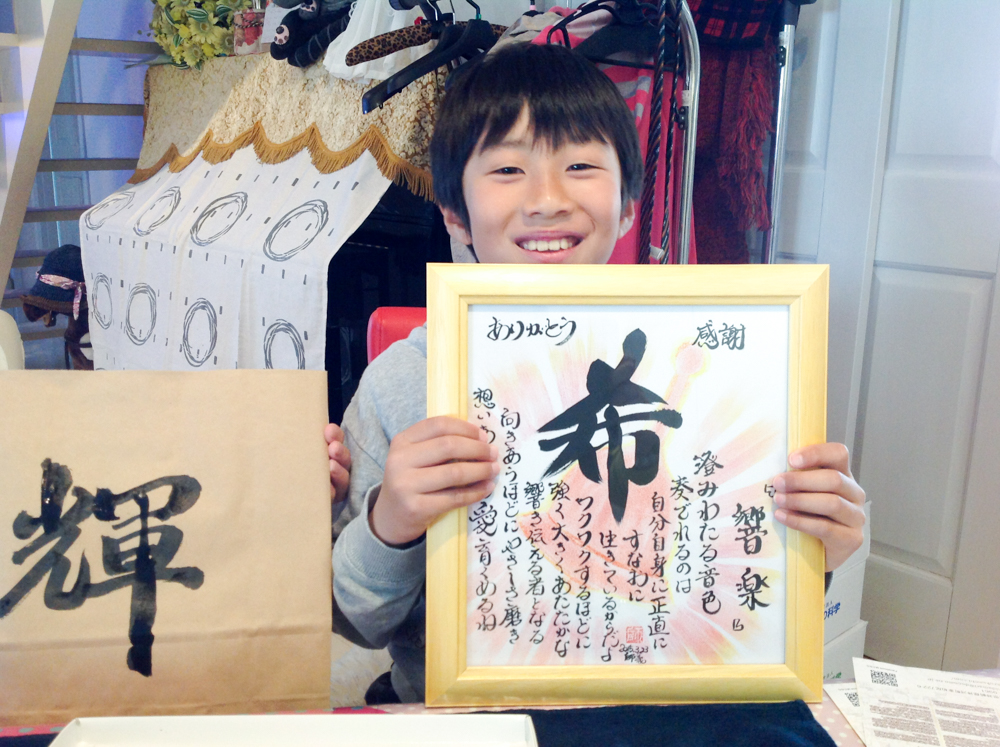 輝
ありがとう
感謝
希
響楽
澄みわたる音色
奏でれるのは
自分自身に正直に
すなおに
生きているからだよ
ワクワクするほどに
強く大きくあたたかな
響き伝える者となる
向きあうほどにやさしさ磨き
愛育くめるね
の科学